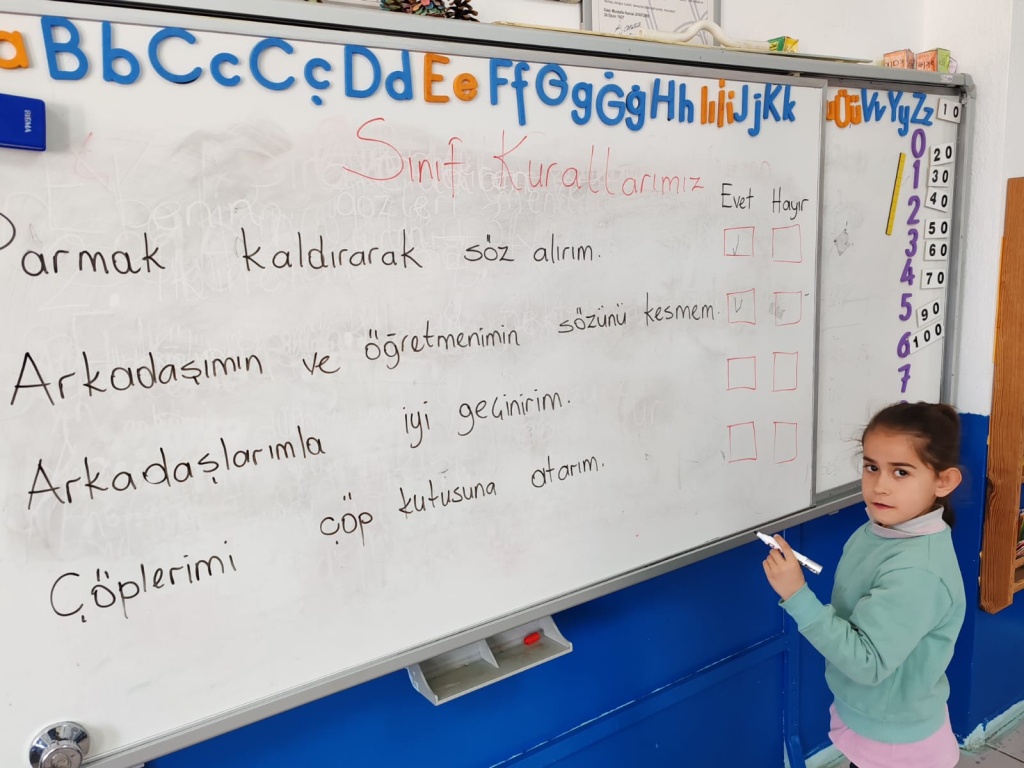 a B b C c Ç ç D d E e F f G g Ğ ğ H h I ı İ i J j K k
Ü ü V v Y y Z z
Sınıf Kurallarımız
Evet Hayır
Parmak kaldırarak söz alırım.
Arkadaşımın ve öğretmenimin sözünü kesmem.
Arkadaşlarımla iyi geçinirim.
Çöplerimi çöp kutusuna atarım.
0
1
2
3
4
5
6
7
10
20
30
40
50
60
70
90
100